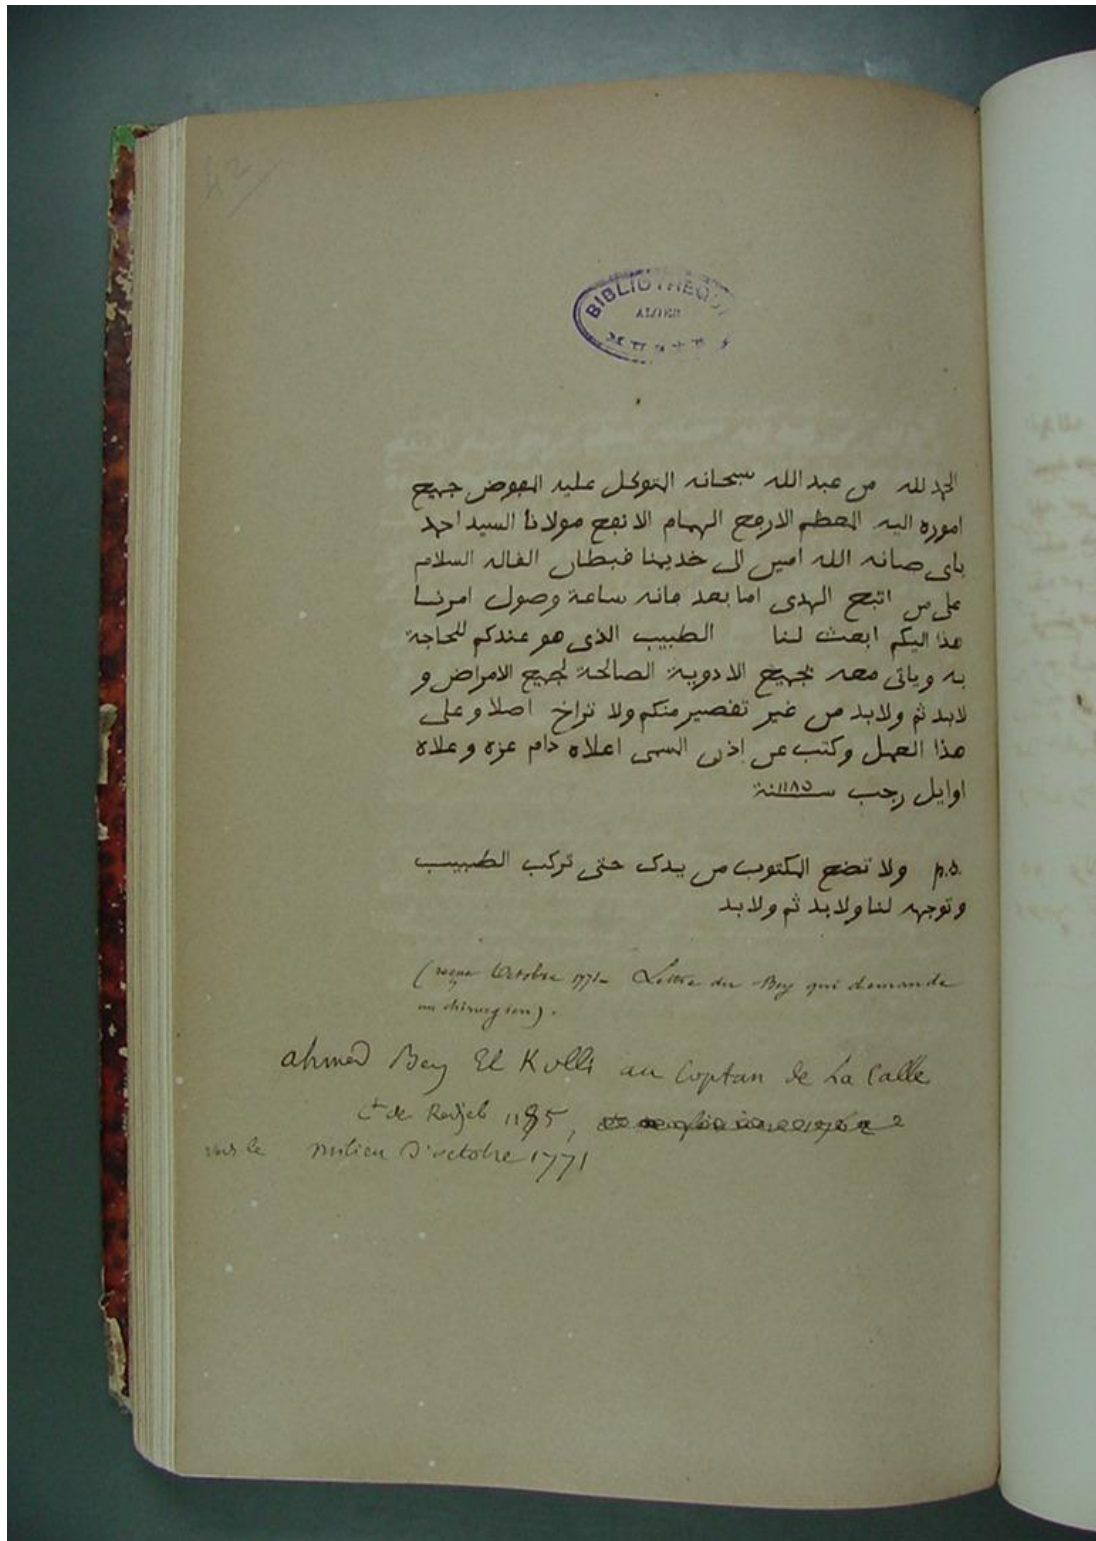 42
BIBLIOTHEQU
ALGER
الحمد لله من عبد الله سبحانه المتوكل عليه المفوض جميع
اموره اليه المعظم الارفع الهمام الانفع مولانا السيد احمد
باي صانه الله امين الى خديمنا فبطان الفاله السلام
على من اتبع الهدى اما بعد فانه ساعة وصول امرنا
هذا اليكم ابعث لنا الطبيب الذى هو عندكم للحاجة
به وياتى معه بجميع الادوية الصالحة لجميع الامراض و
لابد ثم ولابد من غير تفصير منكم ولا تراخ اصلا وعلى
هذا العمل وكتب عن اذن السمى اعلاه دام عزه وعلاه
اوايل رجب سنة ١١٨٥
p.s. ولا تضع المكتوب من يدك حتى تركب الطبيب
وتوجهه لنا ولابد ثم ولابد
(reçue Octobre 1771 - Lettre du Bey qui demande
un chirurgien).
Ahmed Bey El Kolli au Captan de La Calle
Ct de Redjeb 1185,
vers le milieu d'octobre 1771